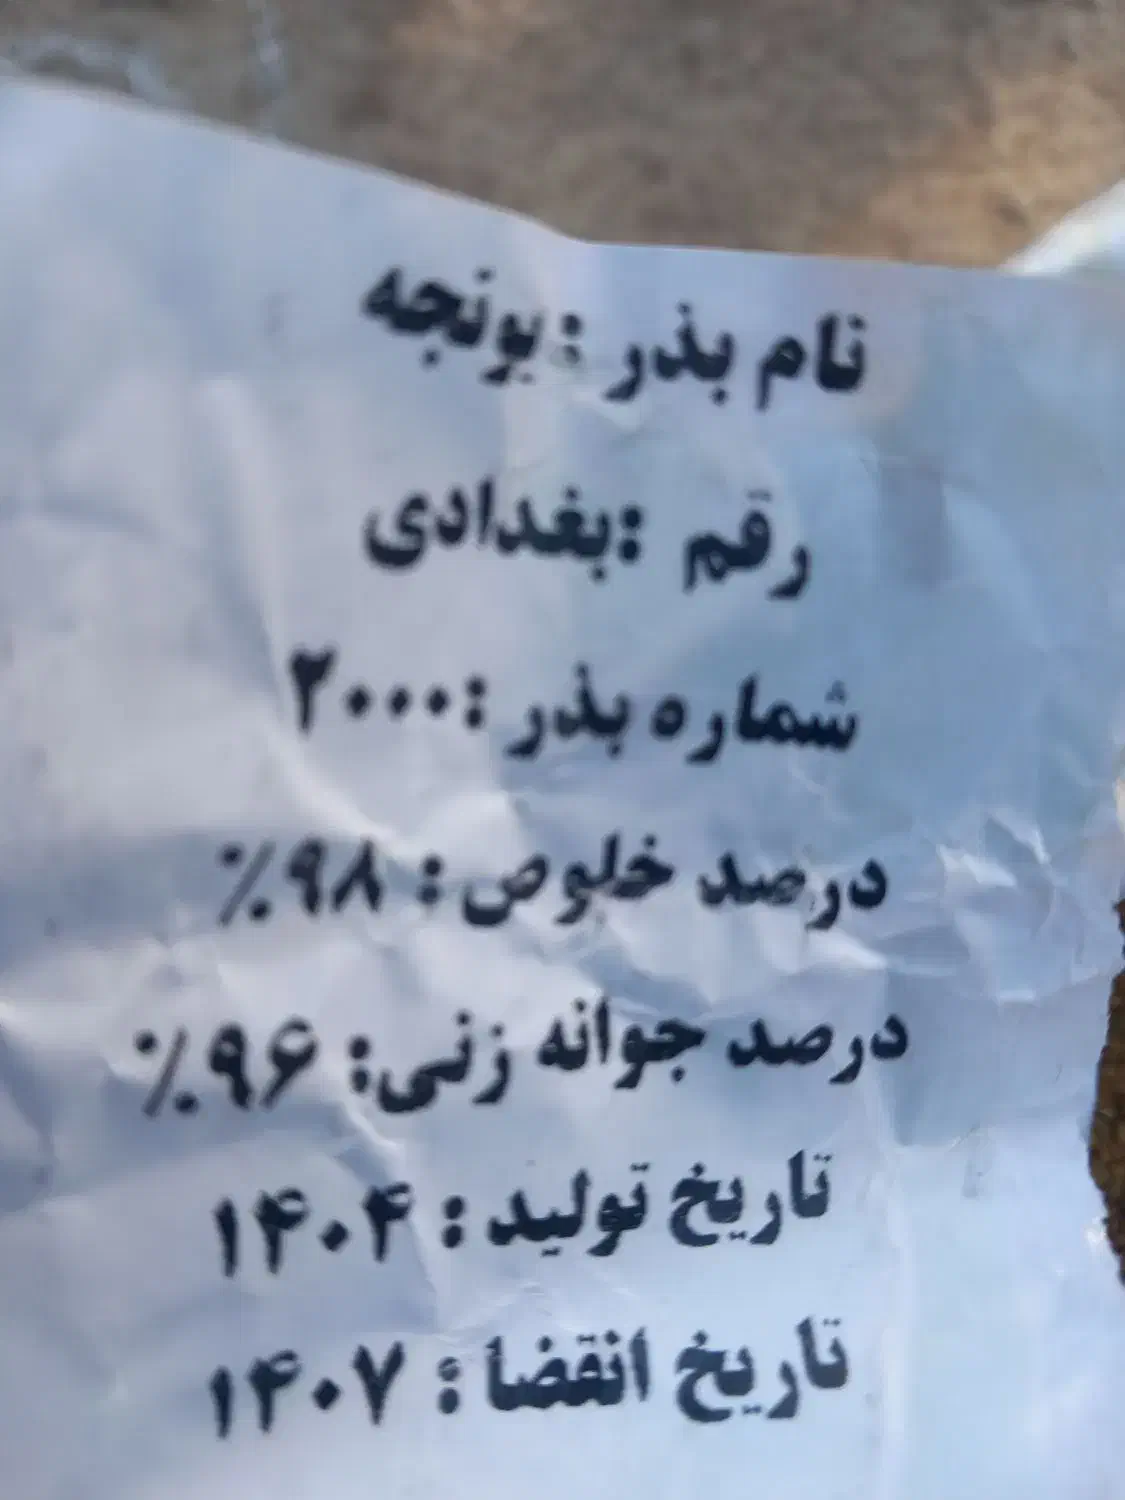 نام بذر :یونجه
رقم :بغدادی
شماره بذر :۲۰۰۰
درصد خلوص : ۹۸٪
درصد جوانه زنی: ۹۶٪
تاریخ تولید : ۱۴۰۴
تاریخ انقضا : ۱۴۰۷